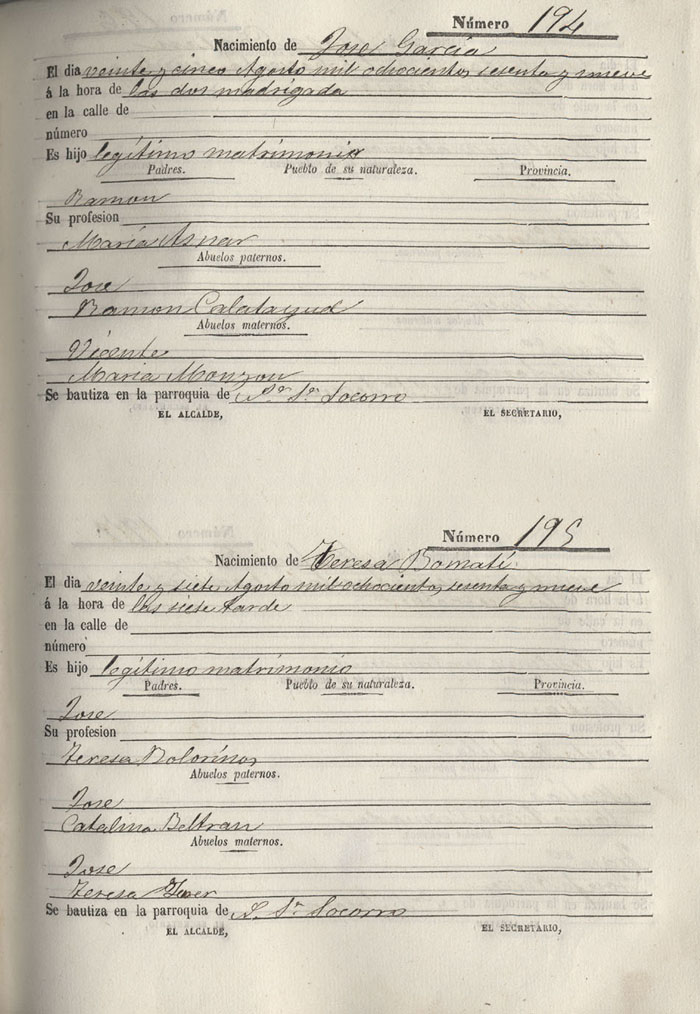 Número 194
Nacimiento de Jose García
El dia veinte y cinco Agosto mil ochocientos sesenta y nueve
á la hora de las dos madrigada
en la calle de
número
Es hijo legítimo matrimonio
Padres. Pueblo de su naturaleza. Provincia.
Ramon
Su profesion
María Asnar
Abuelos paternos.
Jose
Ramon Calatayud
Abuelos maternos.
Vicente
Maria Monzon
Se bautiza en la parroquia de Sra Socorro
EL ALCALDE, EL SECRETARIO,
Número 195
Nacimiento de Teresa Bomatí
El dia veinte y siete Agosto mil ochocientos sesenta y nueve
á la hora de las siete tarde
en la calle de
número
Es hijo legítimo matrimonio
Padres. Pueblo de su naturaleza. Provincia.
Jose
Su profesion
Teresa Bolorinos
Abuelos paternos.
Jose
Catalina Beltran
Abuelos maternos.
Jose
Teresa
Se bautiza en la parroquia de Sra Socorro
EL ALCALDE, EL SECRETARIO,